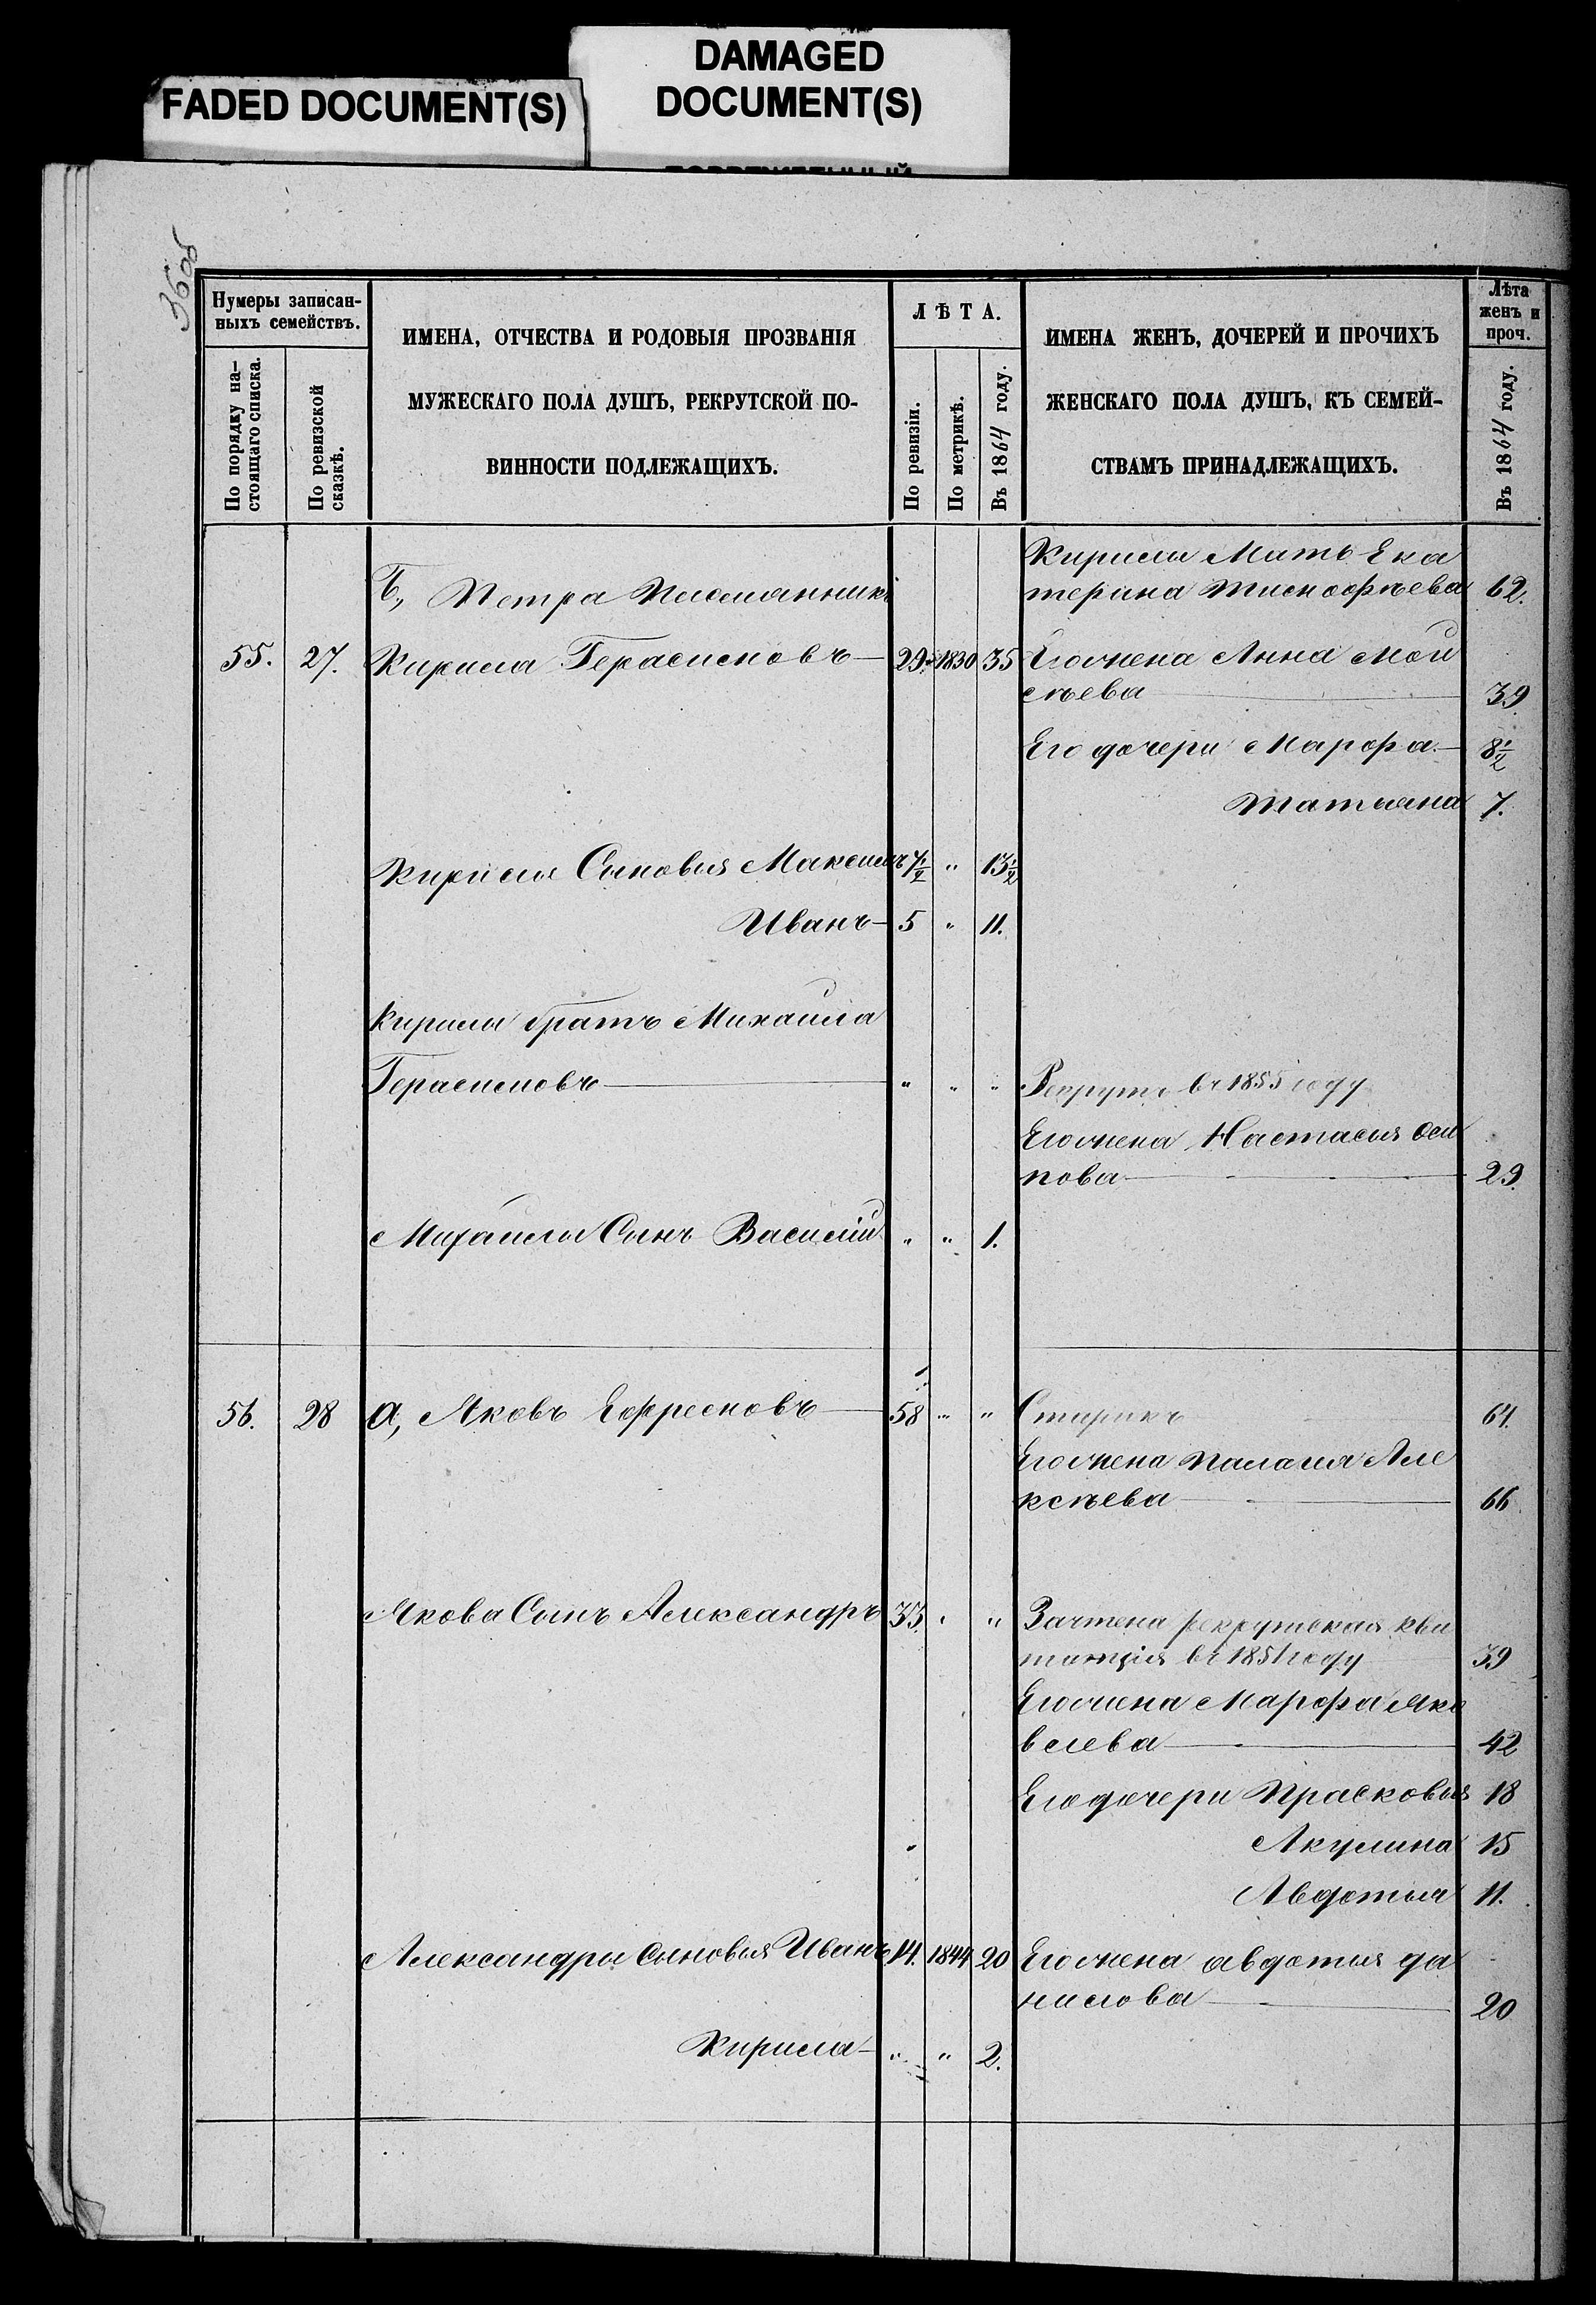 DAMAGED
DOCUMENT(S)
FADED DOCUMENT(S)
36об
Нумеры записан-
ныхъ семействъ.
По порядку на-
стоящаго списка.
По ревизской
сказкѣ.
ИМЕНА, ОТЧЕСТВА И РОДОВЫЯ ПРОЗВАНІЯ
МУЖЕСКАГО ПОЛА ДУШЪ, РЕКРУТСКОЙ ПО-
ВИННОСТИ ПОДЛЕЖАЩИХЪ.
ЛѢТА.
По ревизіи.
По метрикѣ.
Въ 1864 году.
ИМЕНА ЖЕНЪ, ДОЧЕРЕЙ И ПРОЧИХЪ
ЖЕНСКАГО ПОЛА ДУШЪ, КЪ СЕМЕЙ-
СТВАМЪ ПРИНАДЛЕЖАЩИХЪ.
Лѣта
женъ и
проч.
Въ 1864 году.
Кирилы Мать Ека
Б, Петра Племянникъ терина Тимофѣева 62.
55. 27. Кирила Герасимовъ 29 1830 35 Его жена Анна Мои
сѣева 39
Его дочери Марфа 8½
Татьяна 7.
Кирилы Сыновья Максимъ 7½ " 13½
Иванъ 5 " 11.
Кирилы братъ Михаила
Герасимовъ " " " Рекрутъ въ 1855 году
Его жена Настасья Оси
пова 29.
Михаилы Сынъ Василій " " 1.
56. 28 а, Яковъ Ефремовъ 58 " " Старикъ 64.
Его жена Палагея Але
ксѣева 66
Якова Сынъ Александръ 33. " " Зачтена рекрутская кви
танція въ 1851 году 39
Его жена Марфа Яко
влева 42
Его дочери Прасковья 18
Акулина 15
Авдотья 11.
Александры Сыновья Иванъ 14. 1844 20 Его жена Авдотья Да
нилова 20
Кирила " " 2.